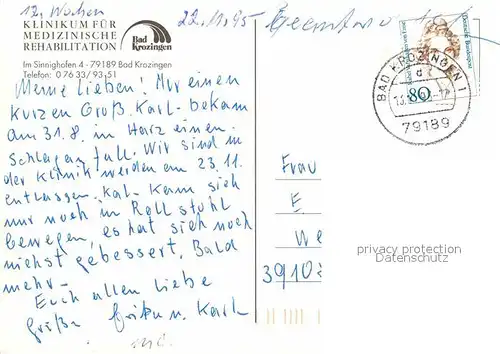 12. Wochen
22.11.95
KLINIKUM FÜR
MEDIZINISCHE
REHABILITATION
Bad
Krozingen
Im Sinnighofen 4 - 79189 Bad Krozingen
Telefon: 0 76 33/93 51
Meine Lieben! Nur einen
kurzen Gruß. Karl bekam
am 31.8. in Harz einen
Schlaganfall. Wir sind in
der Klinik werden am 23.11.
entlassen. Karl kann sich
nur noch in Rollstuhl
bewegen, es hat sich noch
nichst gebessert. Bald
mehr-
Euch allen liebe
Grüße Erika u. Karl
Deutsche Bundespost
80
BAD KROZINGEN 1
79189
Frau
E
We
3910
privacy protection
Datenschutz